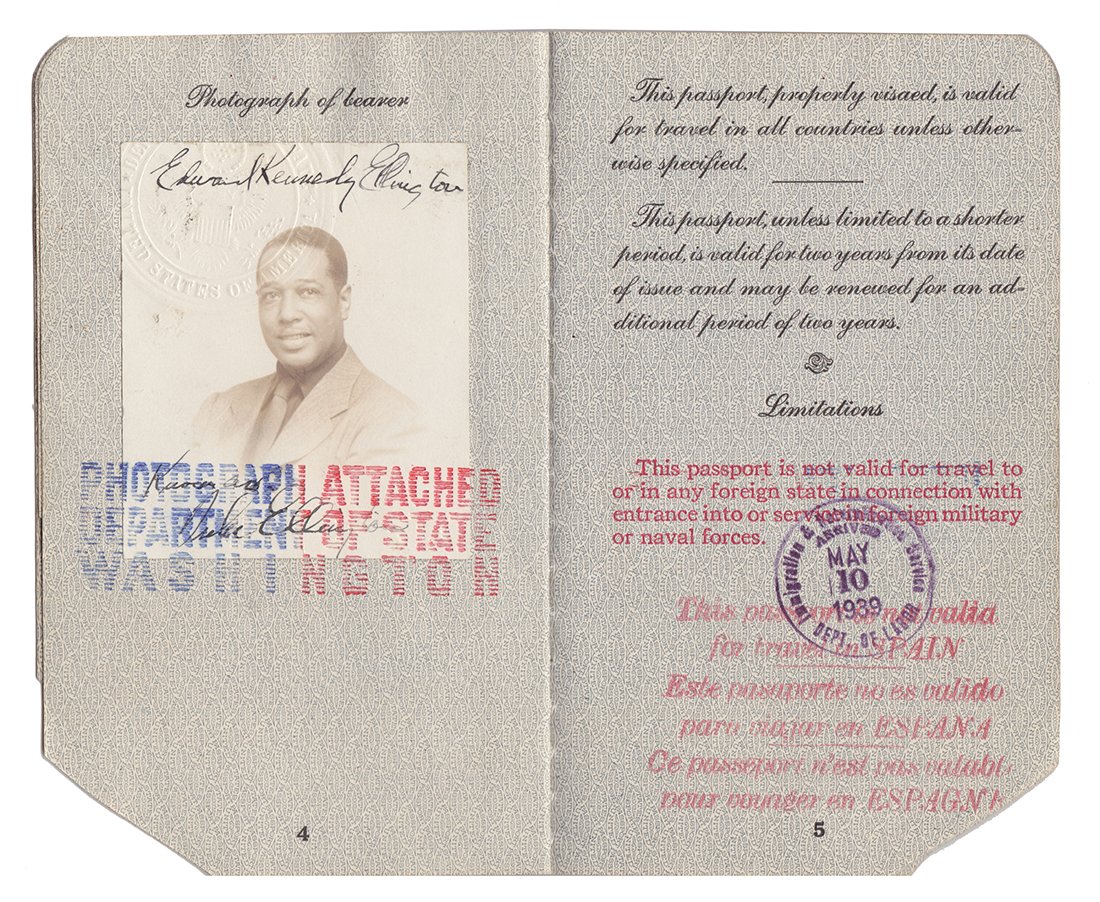 Photograph of bearer
Edward Kennedy Ellington
UNITED STATES OF AMERICA
PHOTOGRAPH ATTACHED
DEPARTMENT OF STATE
WASHINGTON
Known as
Duke Ellington
4
This passport, properly visaed, is valid
for travel in all countries unless other-
wise specified.
This passport, unless limited to a shorter
period, is valid for two years from its date
of issue and may be renewed for an ad-
ditional period of two years.
Limitations
This passport is not valid for travel to
or in any foreign state in connection with
entrance into or service in foreign military
or naval forces.
Immigration & Naturalization Service
ARRIVED
MAY
10
1939
DEPT. OF LABOR
This passport is not valid
for travel in SPAIN
Este pasaporte no es válido
para viajar en ESPANA
Ce passeport n'est pas valabl
pour voyager en ESPAGNE
5